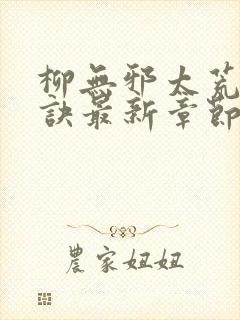 柳無邪太荒
訣最新章節
農家妞妞